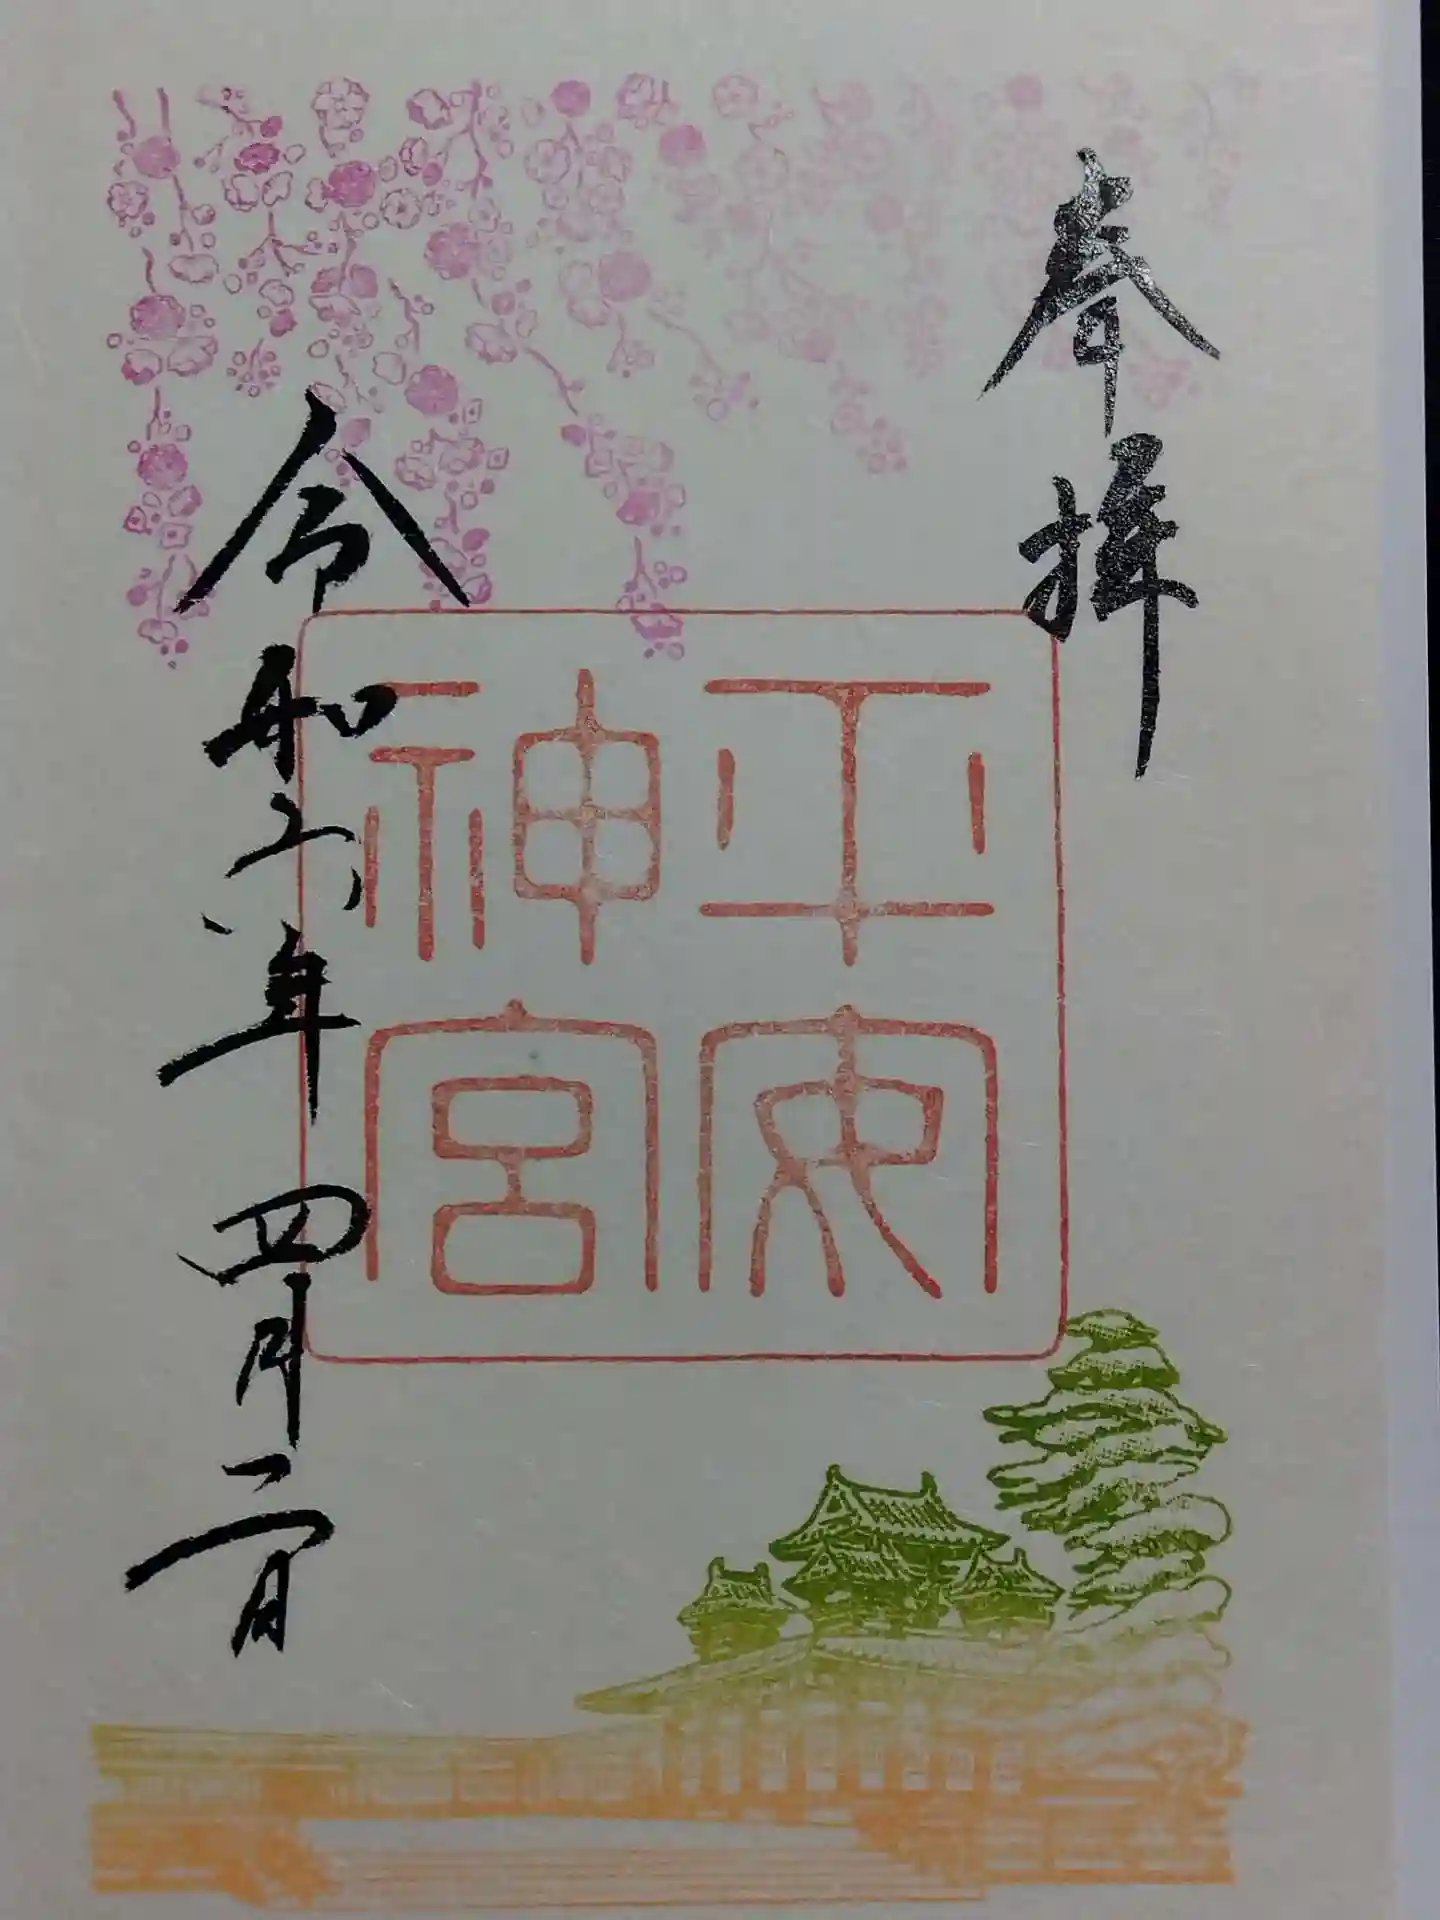 奉拝
平安
神宮
令和六年四月二日